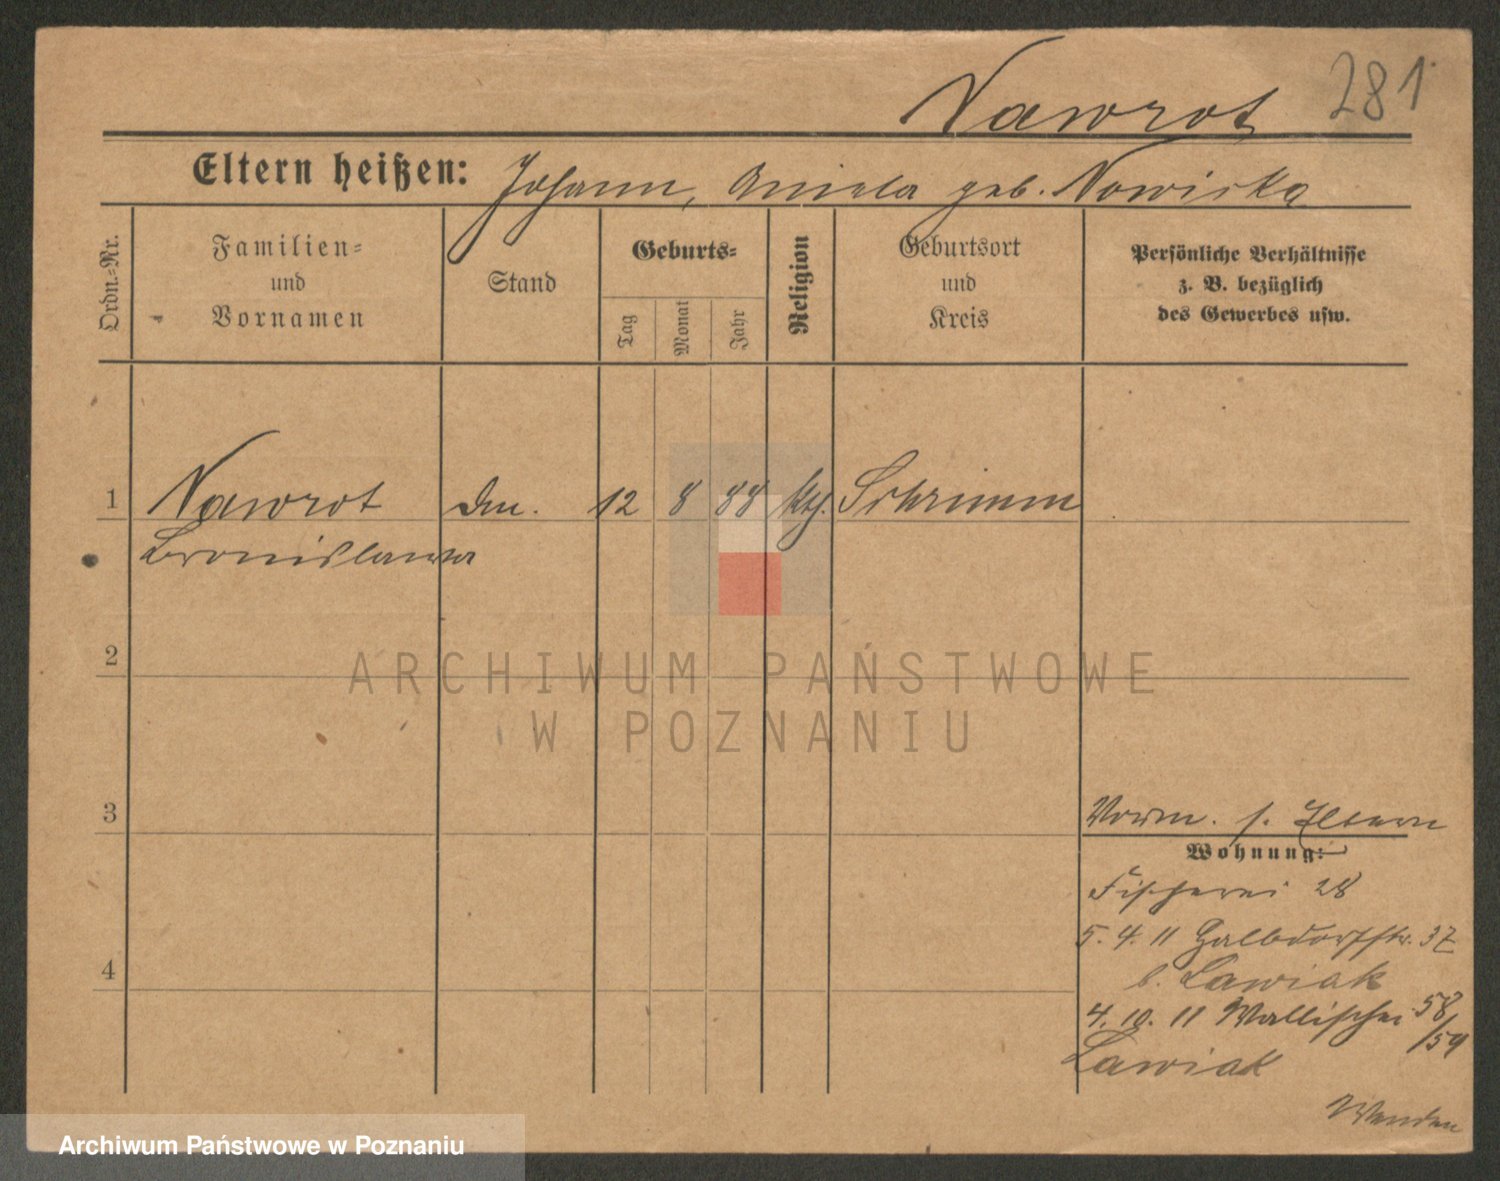 Nawrot 281
Eltern heißen: Johann, Aniela geb. Nowicka
Ordn.=Nr.
Familien=
und
Vornamen
Stand
Geburts=
Tag
Monat
Jahr
Religion
Geburtsort
und
Kreis
Persönliche Verhältnisse
z. B. bezüglich
des Gewerbes usw.
1 Nawrot 12 8 88 kth. Schrimm
Bronislawa
2
ARCHIWUM PAŃSTWOWE
W POZNANIU
3
Vorm. s. Eltern
Wohnung:
Fischerei 28
5. 4. 11 Halbdorfstr. 37
b. Lawiak
4. 10. 11 Wallischei 58
/59
Lawiak
4
Wenden
Archiwum Państwowe w Poznaniu